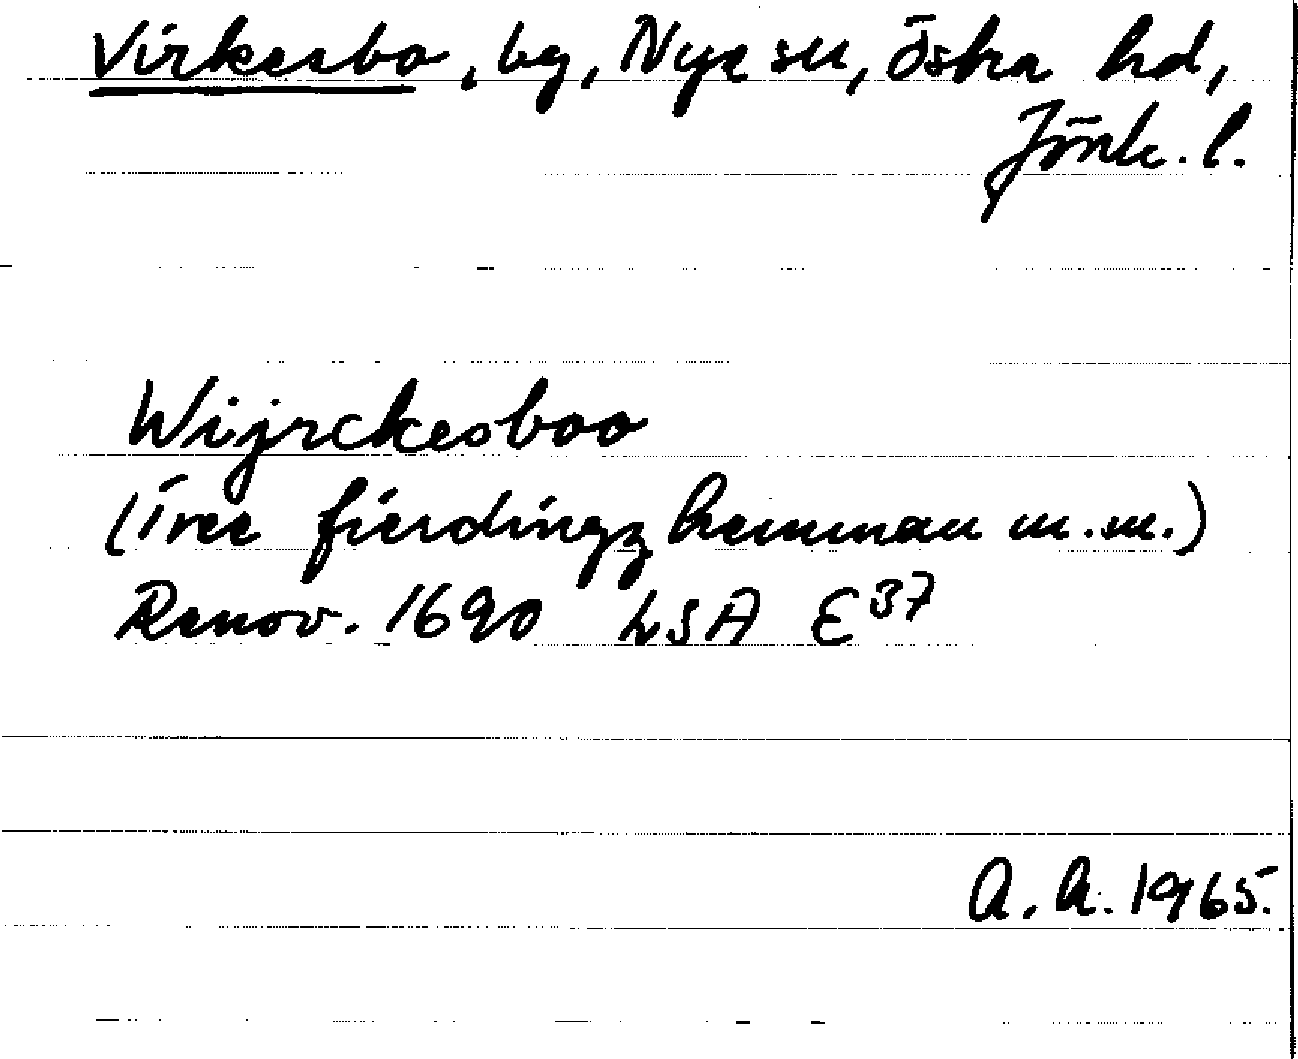 Virkesbo, by, Nye sn, Östra hd,
Jönk. l.
Wijrckesboo
(Tree fierdingz hemman m.m.)
Renov. 1690 LSA E37
A. A. 1965.